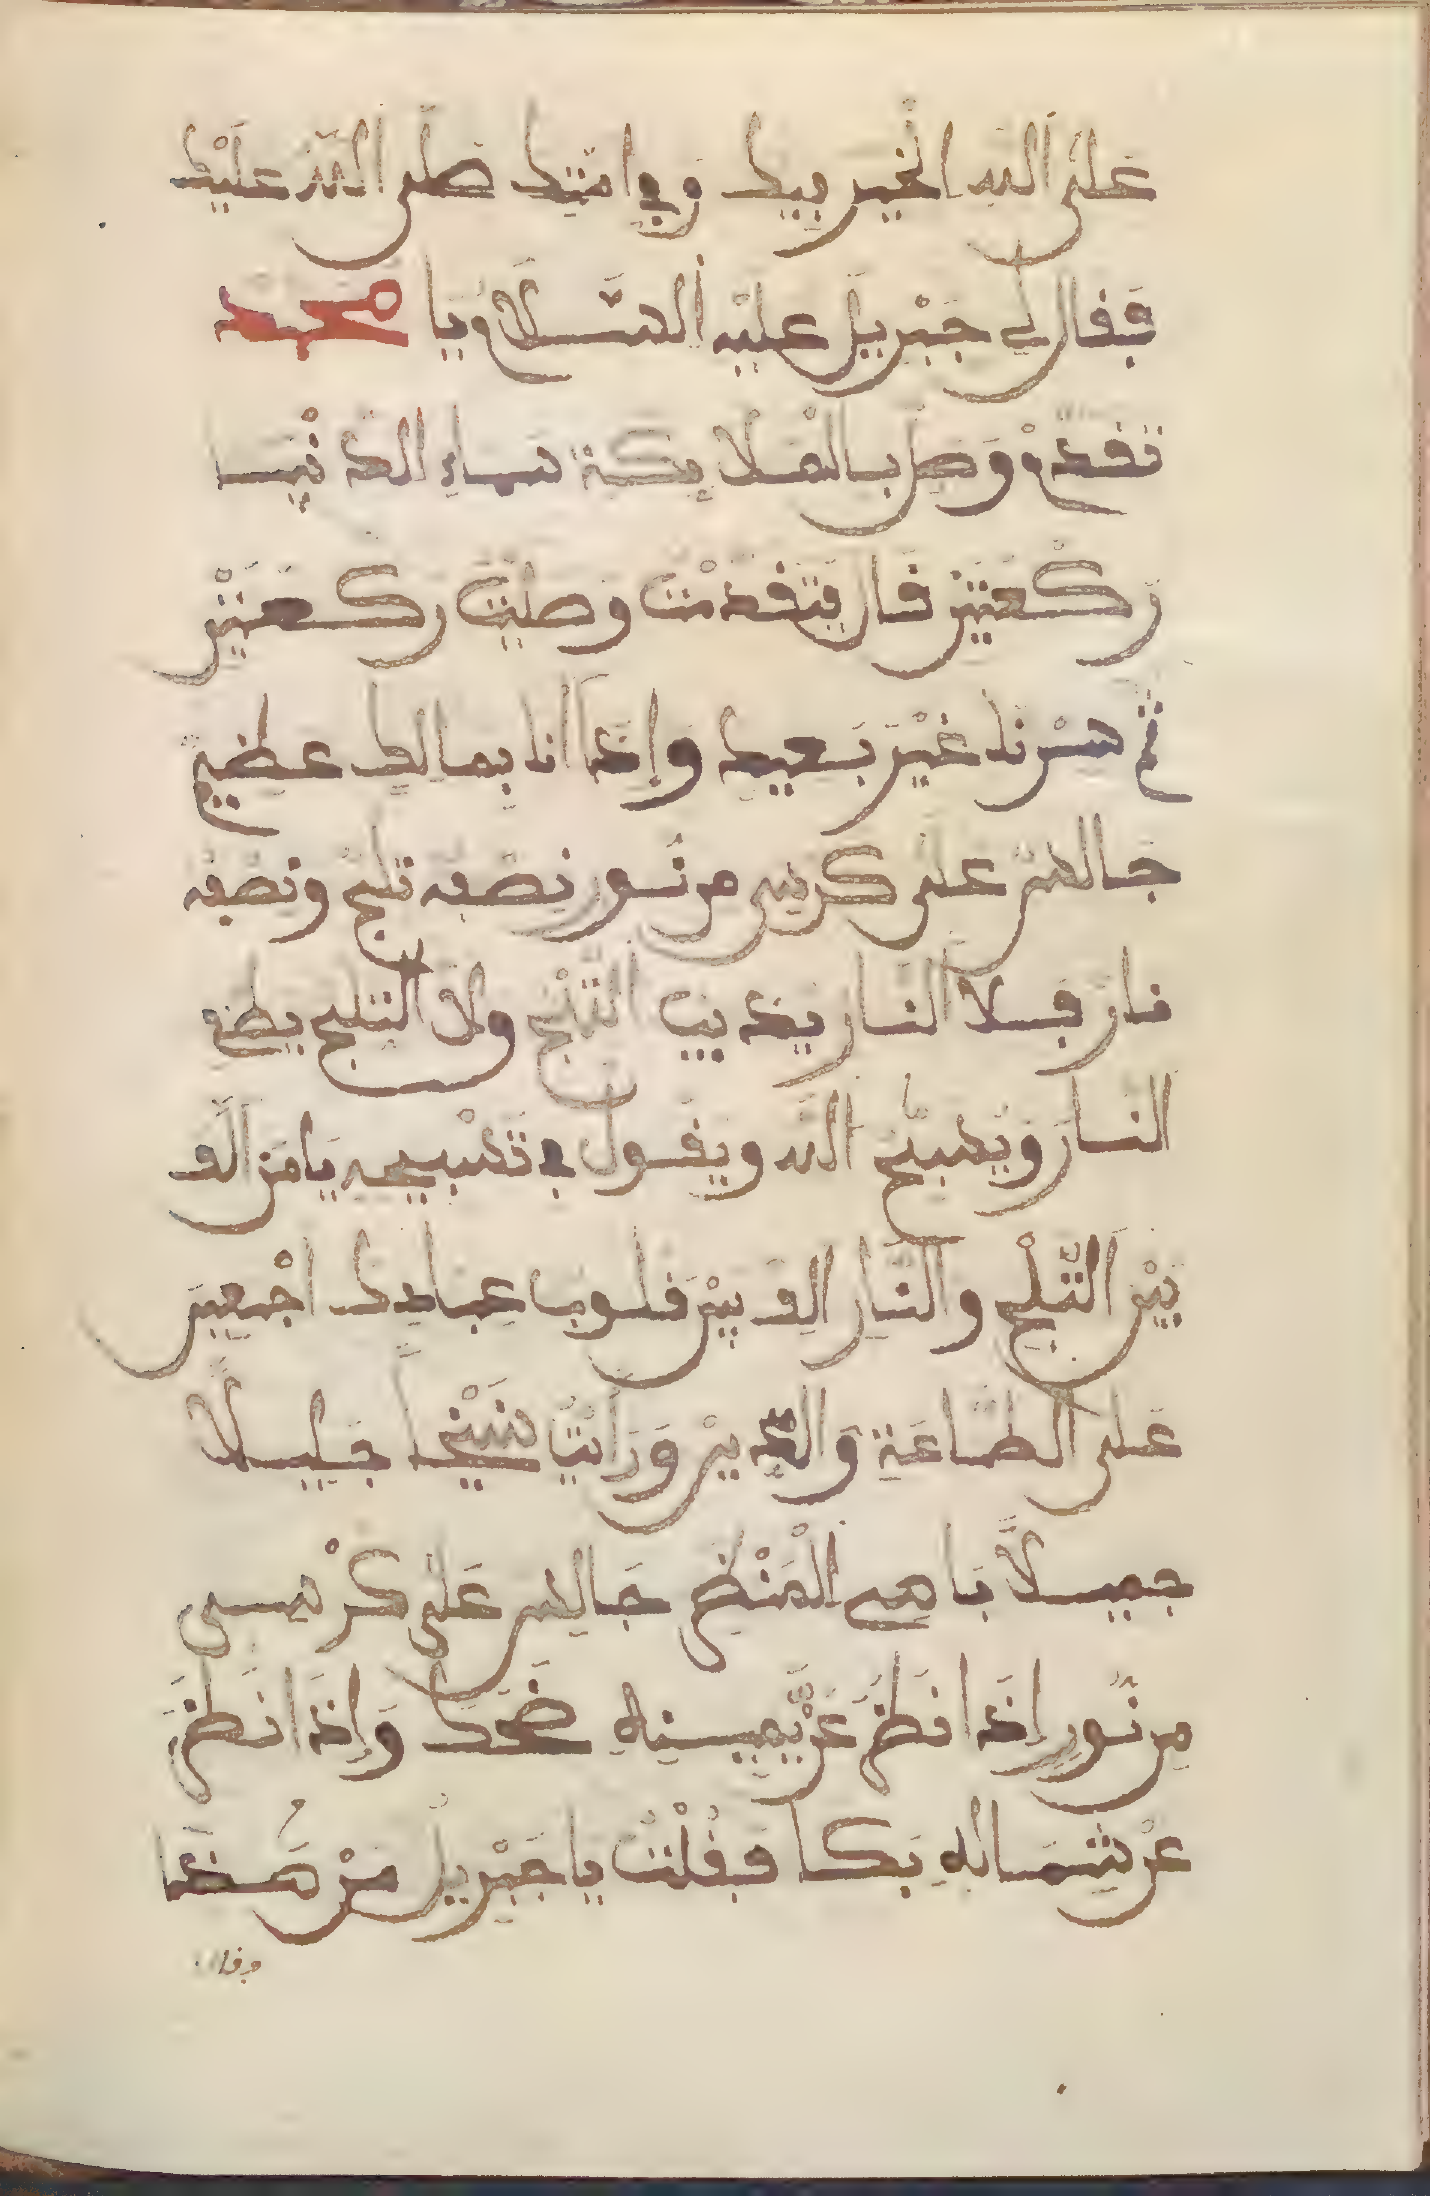 على الله الخير بيك وفي امتك صلى الله عليك
فقال لي جبريل عليه السلام يا محمد
تقدم وصل بالملايكة سماء الدنيا
ركعتين قال فتقدمت وصليت ركعتين
ثم سرنا غير بعيد وإذا أنا بمالك عظيم
جالس على كرسي من نور نصفه ثلج ونصفه
نار فلا النار يذيب الثلج ولا الثلج يطفئ
النار ويسبح الله ويقول في تسبيحه يا من الف
بين الثلج والنار الف بين قلوب عبادك اجمعين
على الطاعة والدين ورأيت شيخا جليلا
جميلا باهي المنظر جالس على كرسي
من نور إذا نظر عن يمينه ضحك وإذا نظر
عن شماله بكا فقلت يا جبريل من هذا
فقال